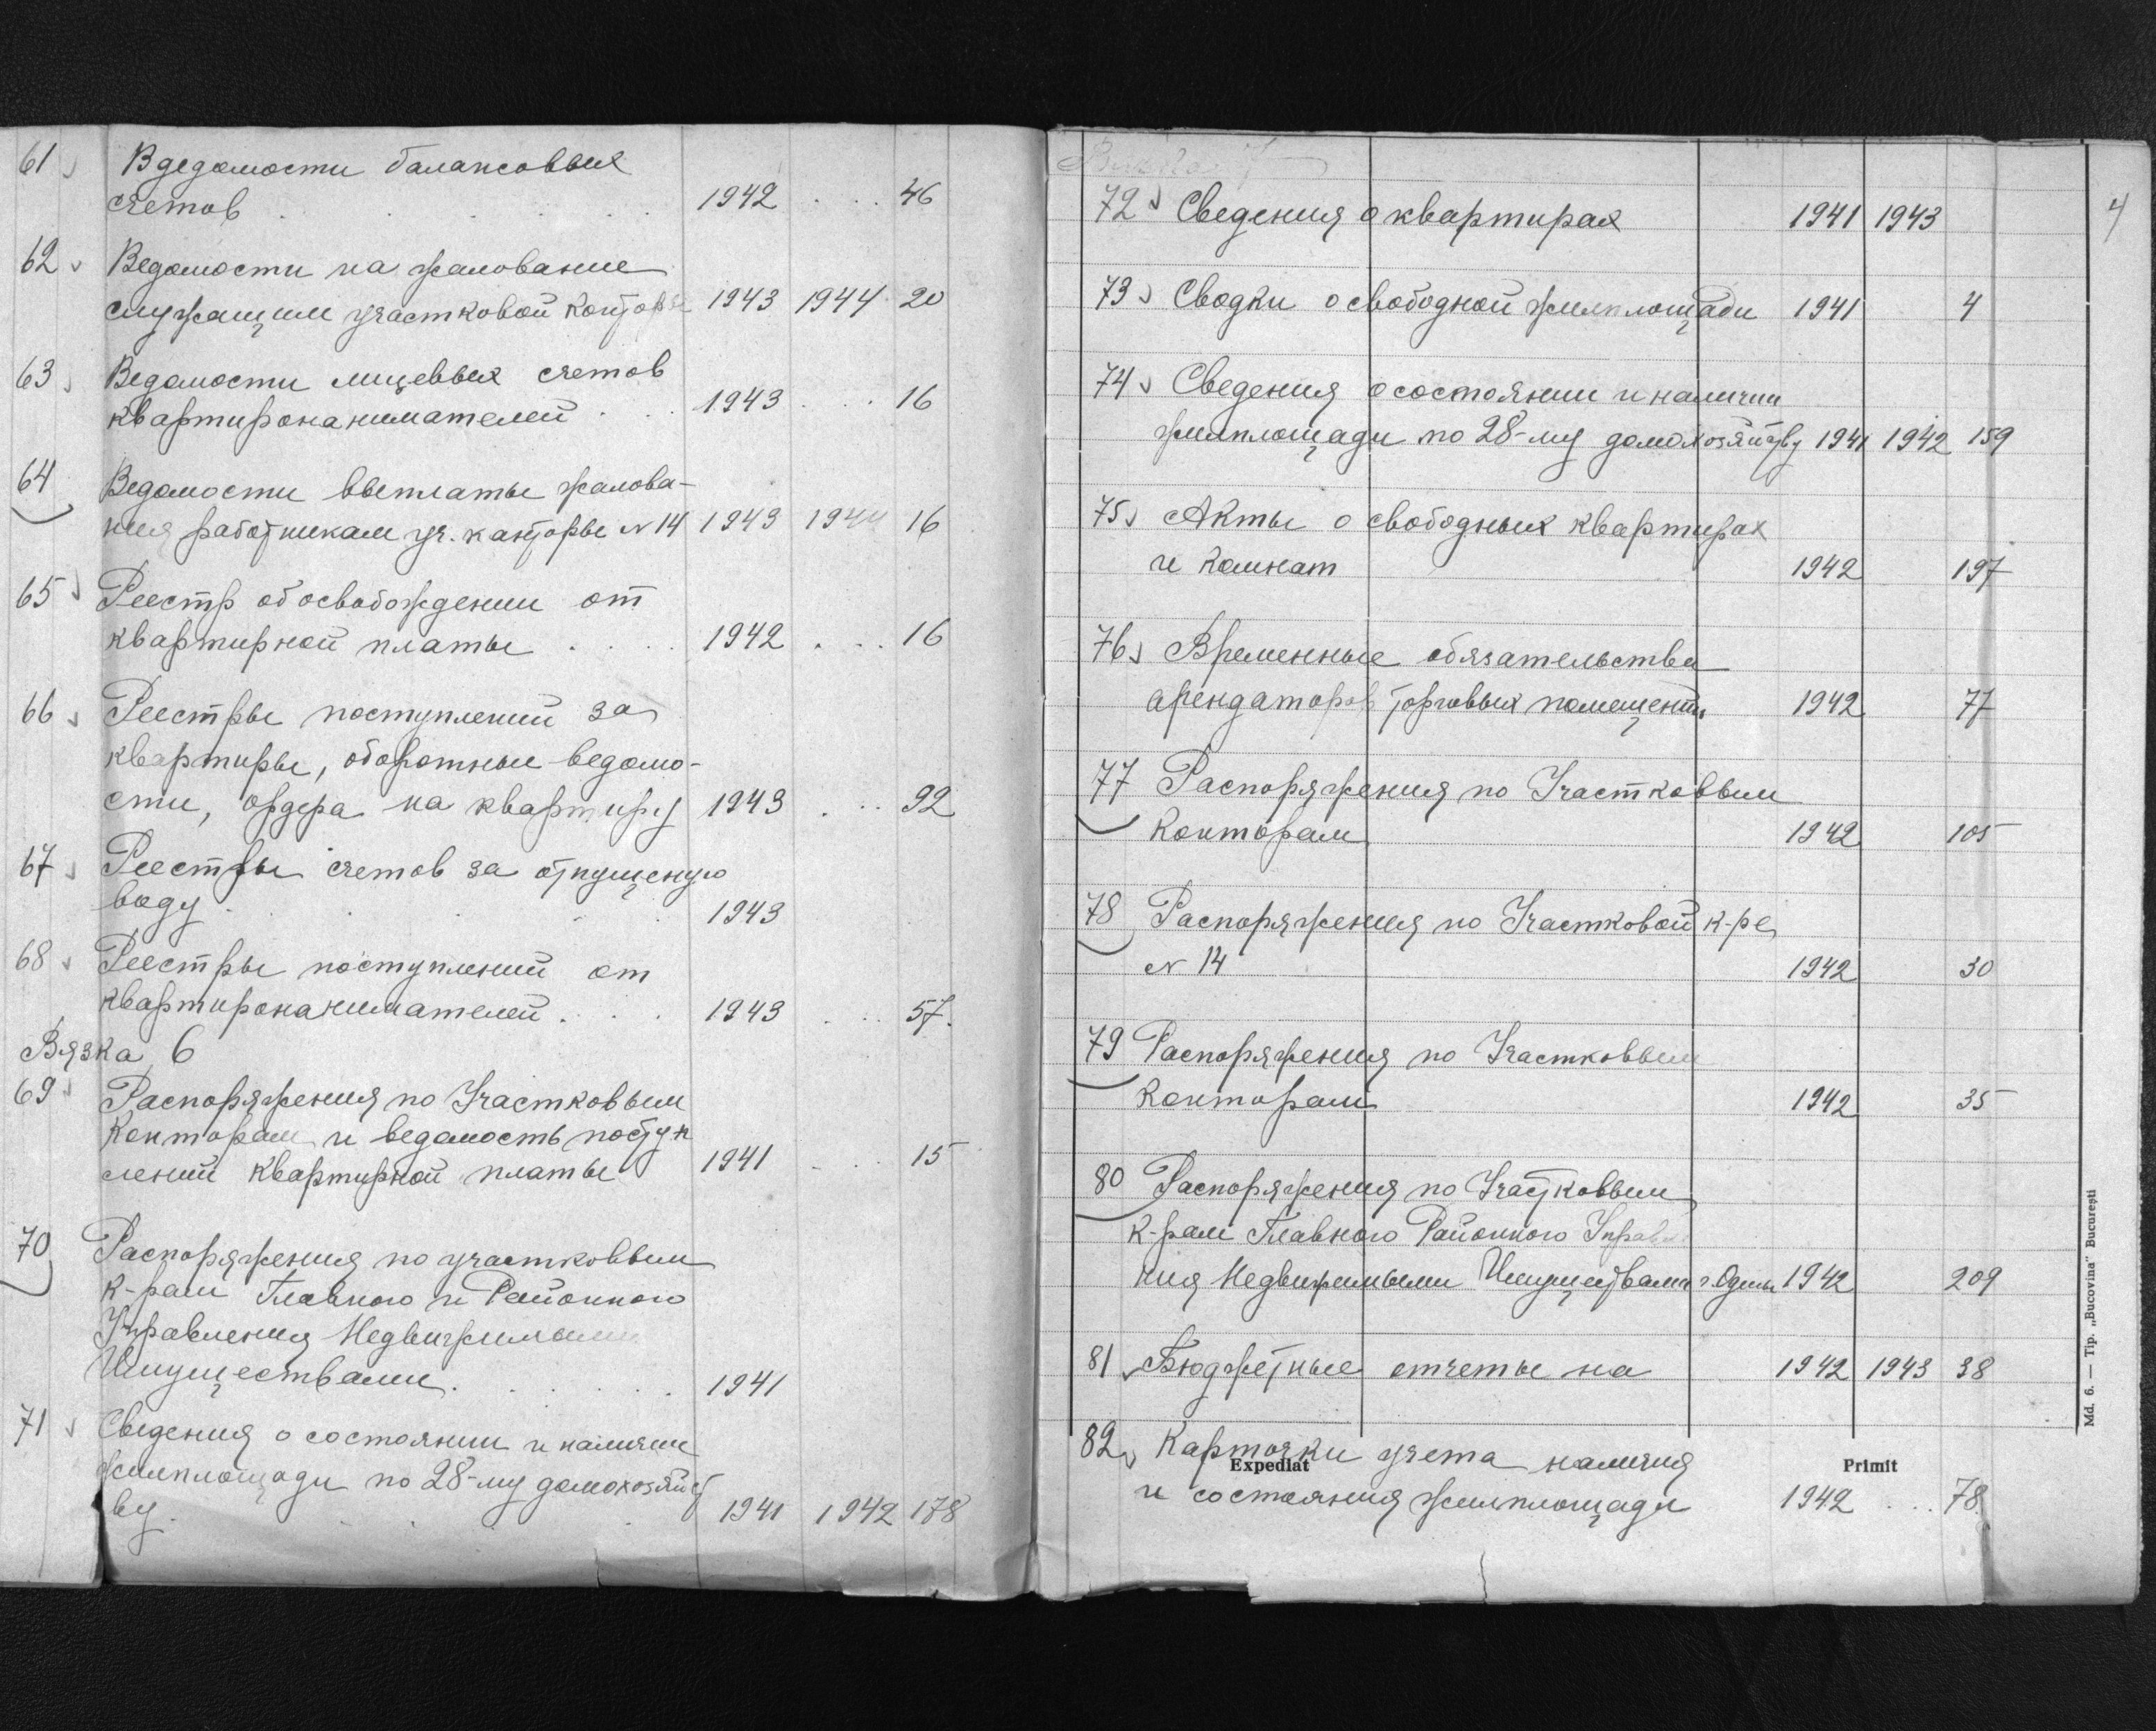 61 Вдедомости балансовых
счетов . . . . . 1942 . . . 46
62 Ведомости на жалование
служащим участковой конторы 1943 1944 20
63 Ведомости лицевых счетов
квартиронанимателей . . . 1943 . . . 16
64 Ведомости выплаты жалова-
ния работникам уч. канторы N 14 1943 1944 16
65 Реестр об освобождении от
квартирной платы . . . . 1942 . . . 16
66 Реестры поступлений за
квартиры, оборотные ведомо-
сти, ордера на квартиру 1943 . . . 92
67 Реестры счетов за отпущеную
воду . . . . 1943
68 Реестры поступлений от
квартиронанимателей . . . 1943 . . . 57.
Вязка 6
69 Распоряжения по Участковым
Конторам и ведомость поступ
лений квартирной платы 1941 . . . 15
70 Распоряжения по участковым
к-рам Главного и Районного
Управления Недвижимыми
Имуществами . . . . . . 1941
71 Сведения о состоянии и наличии
жилплощади по 28-му домохозяйст
ву . . . . 1941 1942 178
4
72 Сведения о квартирах 1941 1943
73 Сводки о свободной жилплощади 1941 4
74 Сведения о состоянии и наличии
жилплощади по 28-му домохозяйству 1941 1942 159
75 Акты о свободных квартирах
и комнат 1942 197
76 Временные обязательства
арендаторов торговых помещений 1942 77
77 Распоряжения по Участковым
Конторам 1942 105
78 Распоряжения по Участковой к-ре
N 14 1942 30
79 Распоряжения по Участковым
Конторам 1942 35
80 Распоряжения по Участковым
к-рам Главного Районного Управле
ния Недвижимыми Имуществами г. Одессы 1942 209
81 Бюджетные отчеты на 1942 1943 38
82 Карточки учета наличия
Expediat Primit
и состояния жилплощади 1942 . . . 78.
Md. 6. — Tip. „Bucovina" Bucureşti